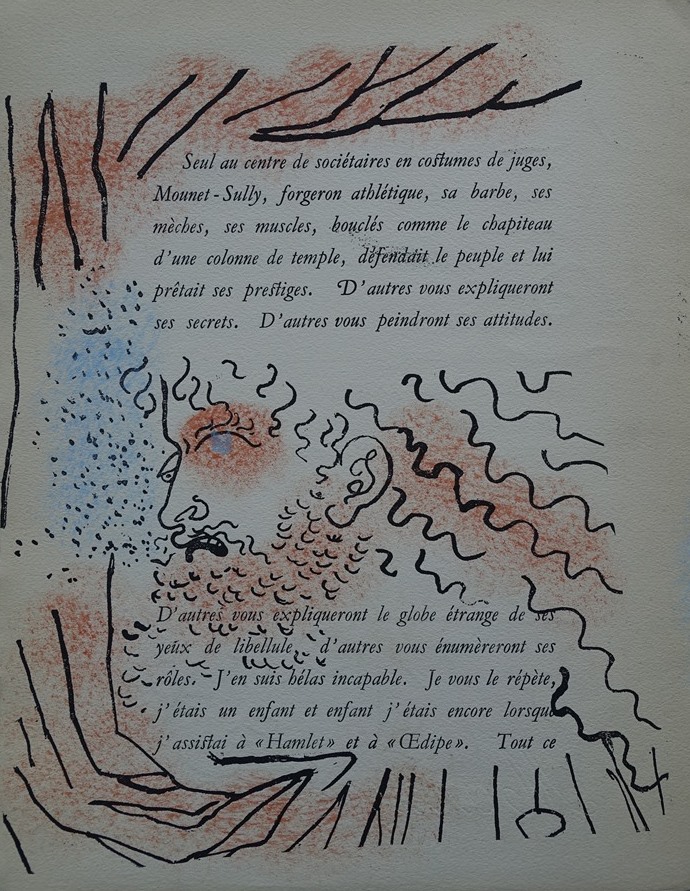 Seul au centre de sociétaires en costumes de juges,
Mounet-Sully, forgeron athlétique, sa barbe, ses
mèches, ses muscles, bouclés comme le chapiteau
d'une colonne de temple, défendait le peuple et lui
prêtait ses prestiges. D'autres vous expliqueront
ses secrets. D'autres vous peindront ses attitudes.
D'autres vous expliqueront le globe étrange de ses
yeux de libellule, d'autres vous énumèreront ses
rôles. J'en suis hélas incapable. Je vous le répète,
j'étais un enfant et enfant j'étais encore lorsque
j'assistai à «Hamlet» et à «Œdipe». Tout ce